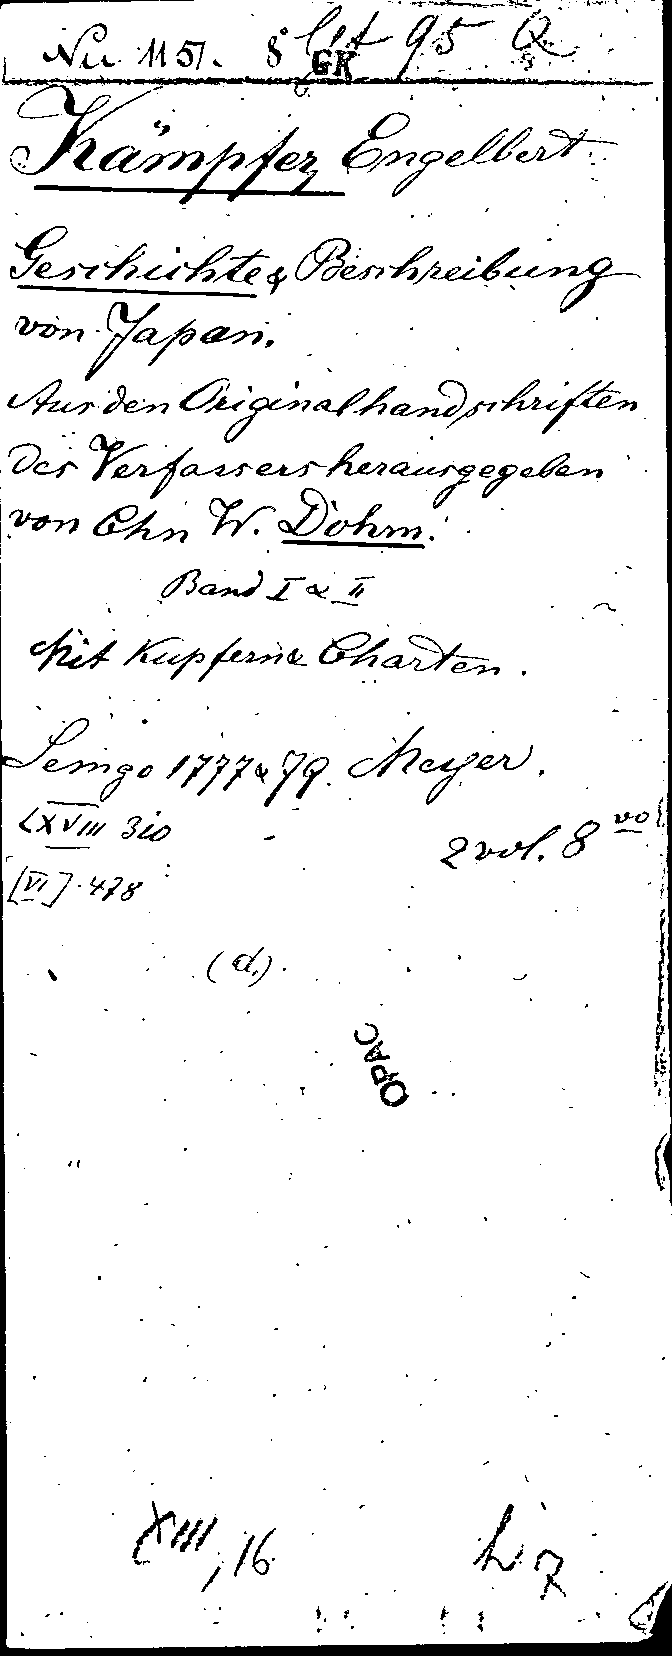 Nu 1151. 8 lit 95 Q
GK
Kämpfer Engelbert
Geschichte & Beschreibung
von Japan.
Aus den Originalhandschriften
des Verfassers herausgegeben
von Chn W. Dohm.
Band I & II
Mit Kupfern & Charten.
Lemgo 1777 & 79. Meyer.
LXVIII 310
2 vol. 8 vo
[VI] 478
(d.)
OPAC
XIII, 16
h 7